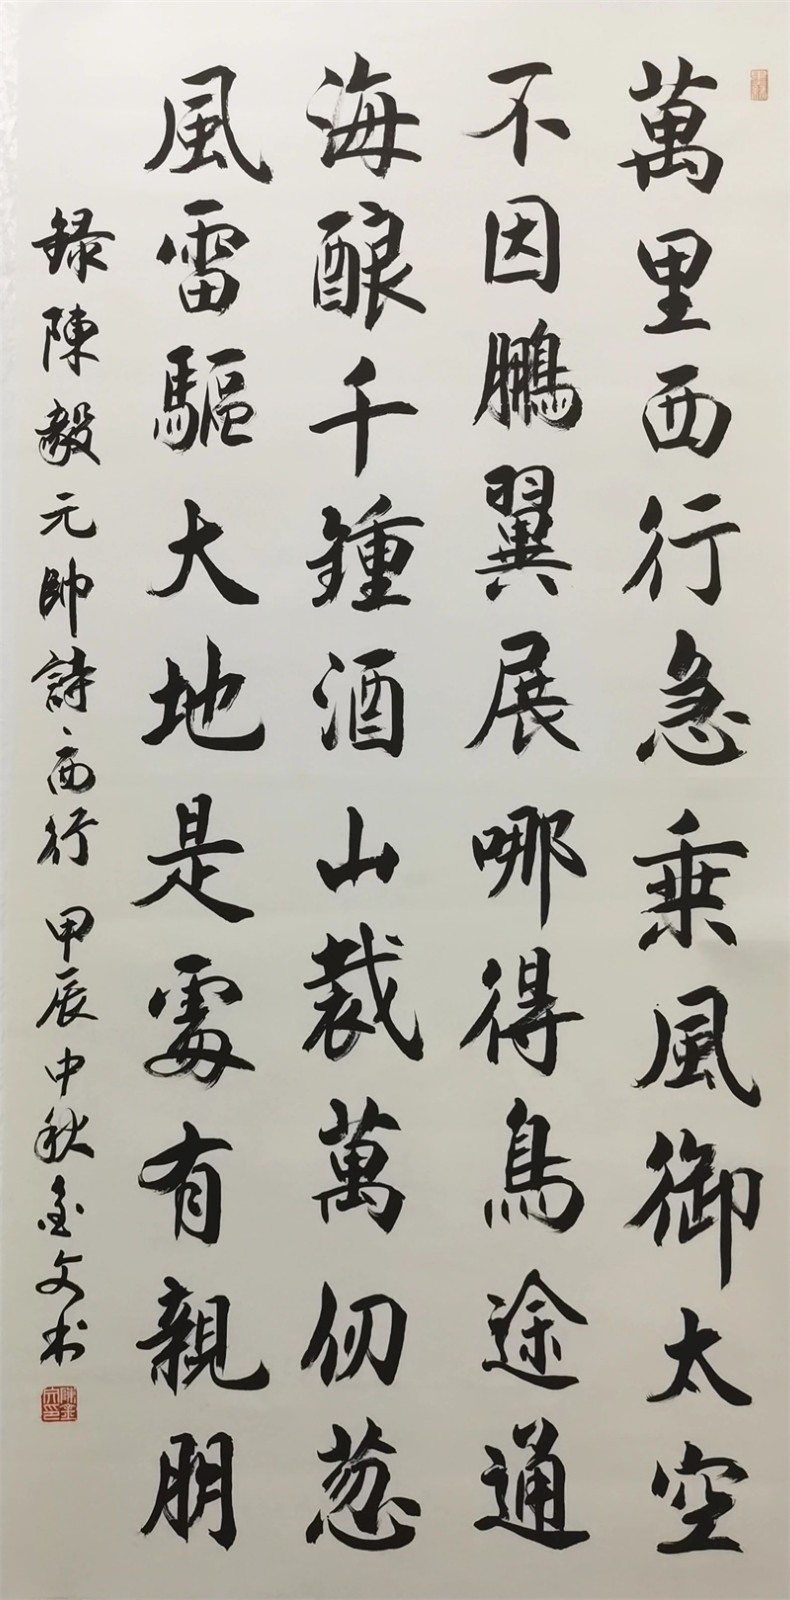 萬里西行急乘風御太空
不因鵬翼展哪得鳥途通
海酿千鍾酒山裁萬仞葱
風雷驅大地是處有親朋
録陳毅元帥詩、西行 甲辰中秋金文术